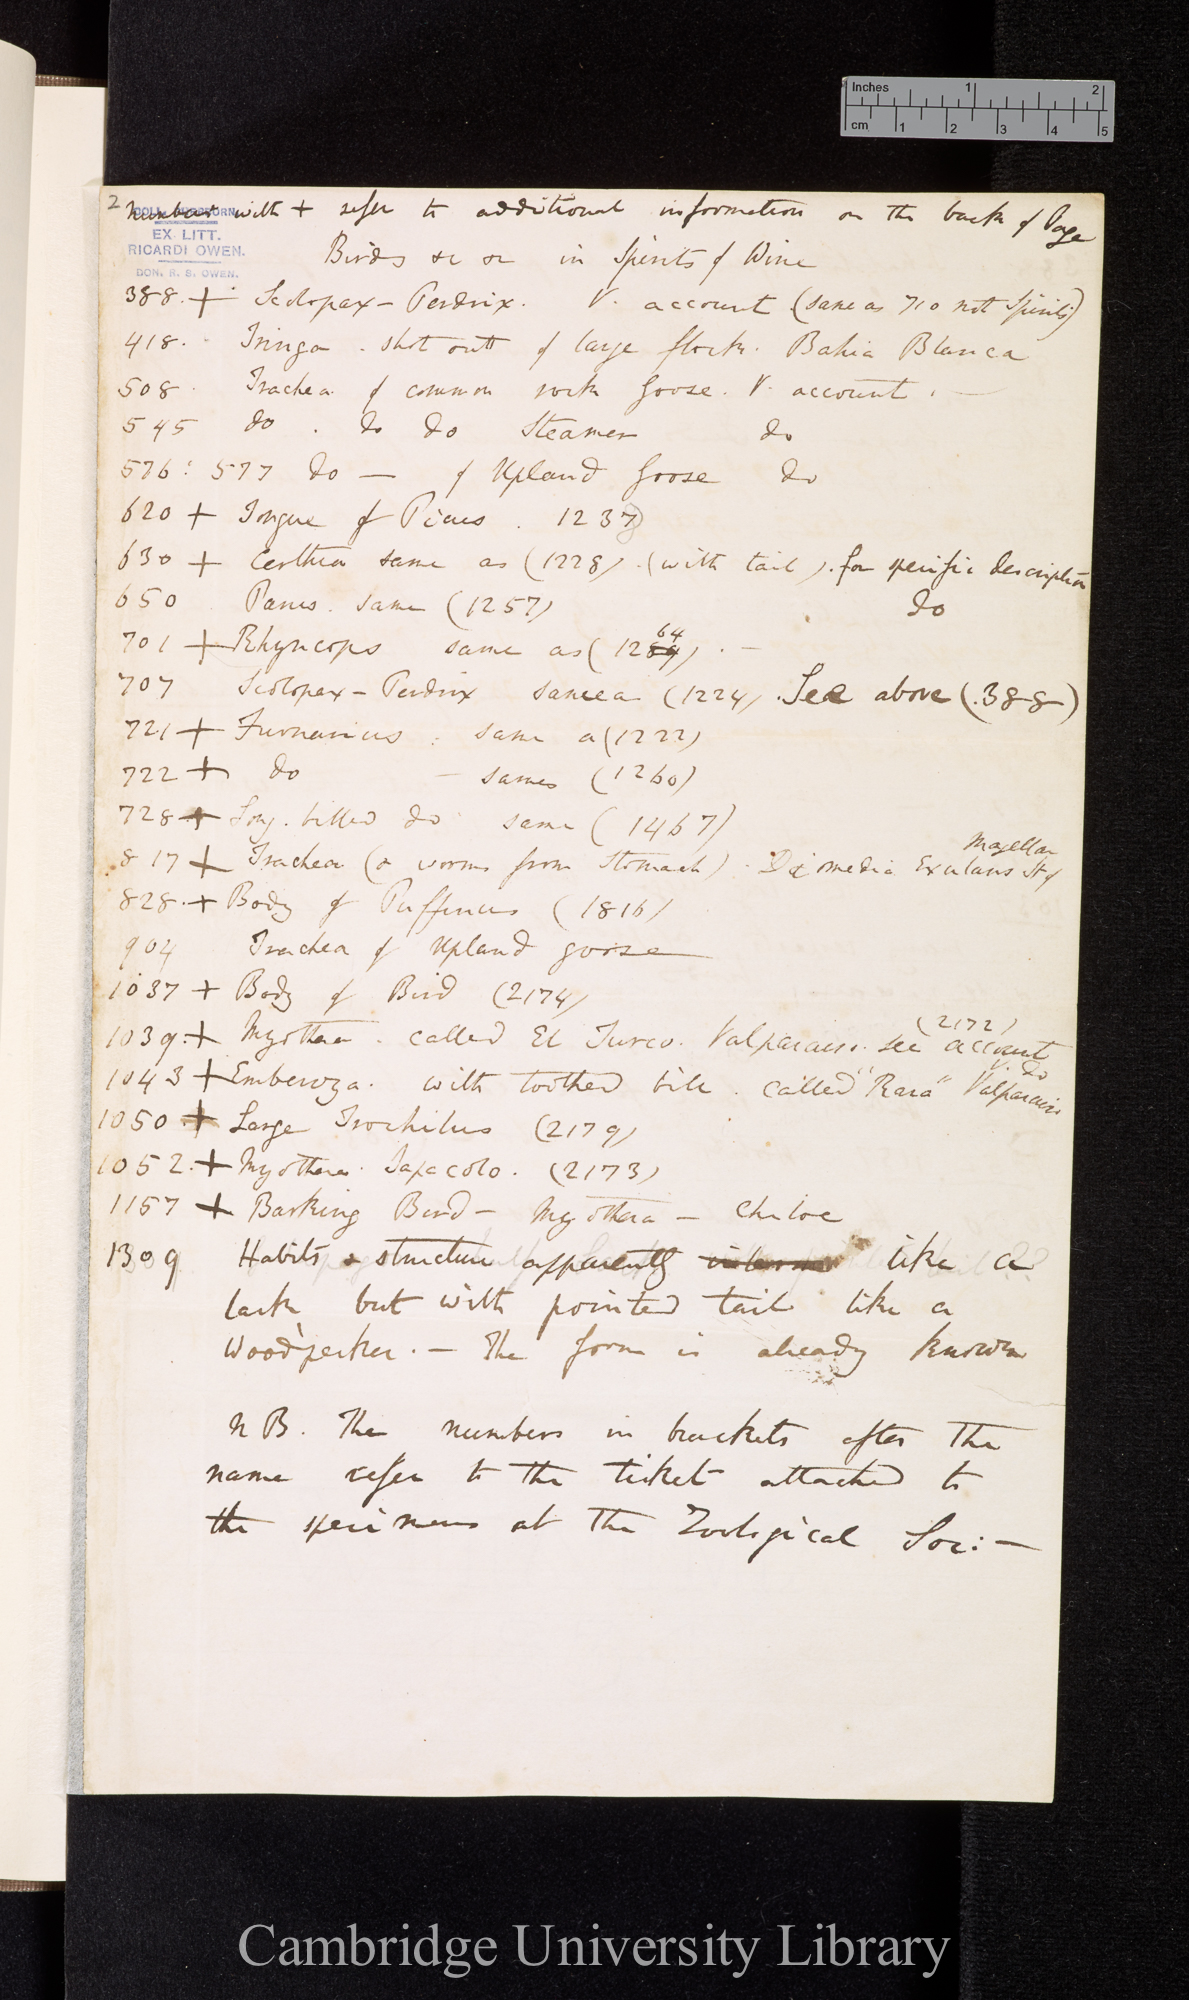 2
Numbers with + refer to additional information on the back of Page
COLL. SHERBORN.
EX LITT.
RICARDI OWEN.
DON. R. S. OWEN.
Birds &c &c in Spirits of Wine
388. + Scolopax – Perdrix. V. account (same as 710 not Spirits)
418. Tringa. shot out of large flock. Bahia Blanca
508. Trachea of common rock Goose. V. account. —
545 do. do do Steamer do
576: 577 do — of Upland Goose do
620 + Tongue of Picus. 1237
630 + Certhia same as (1228). (with tail). for specific description
650 Parus. same (1257) do
701 + Rhyncops same as (1289) 64. —
707 Scolopax – Perdrix same a (1224). See above (.388)
721 + Furnarius. same a (1222)
722 + do – same (1260)
728 + Long. billed do same (1467)
817 + Trachea (& worms from stomach). Diomedia Exulans St of Magellan
828. + Body of Puffinus (1816)
904 Trachea of Upland goose
1037 + Body of Bird (2174)
1039. + Myothera. called El Turco. Valparaiso. see account (2172)
1043 + Emberiza. with toothed bill. called "Rara" V. do Valparaiso
1050 + Large Trochilus (2179)
1052. + Myothera. Tapacolo. (2173)
1157 + Barking Bird – Myothera – Chiloe
1309 Habits & structure apparently like a
lark but with pointed tail like a
Woodpecker. — The form is already known
NB. The numbers in brackets after the
name refer to the ticket attached to
the specimens at the Zoological Soc: —
Inches 1 2
cm 1 2 3 4 5
Cambridge University Library